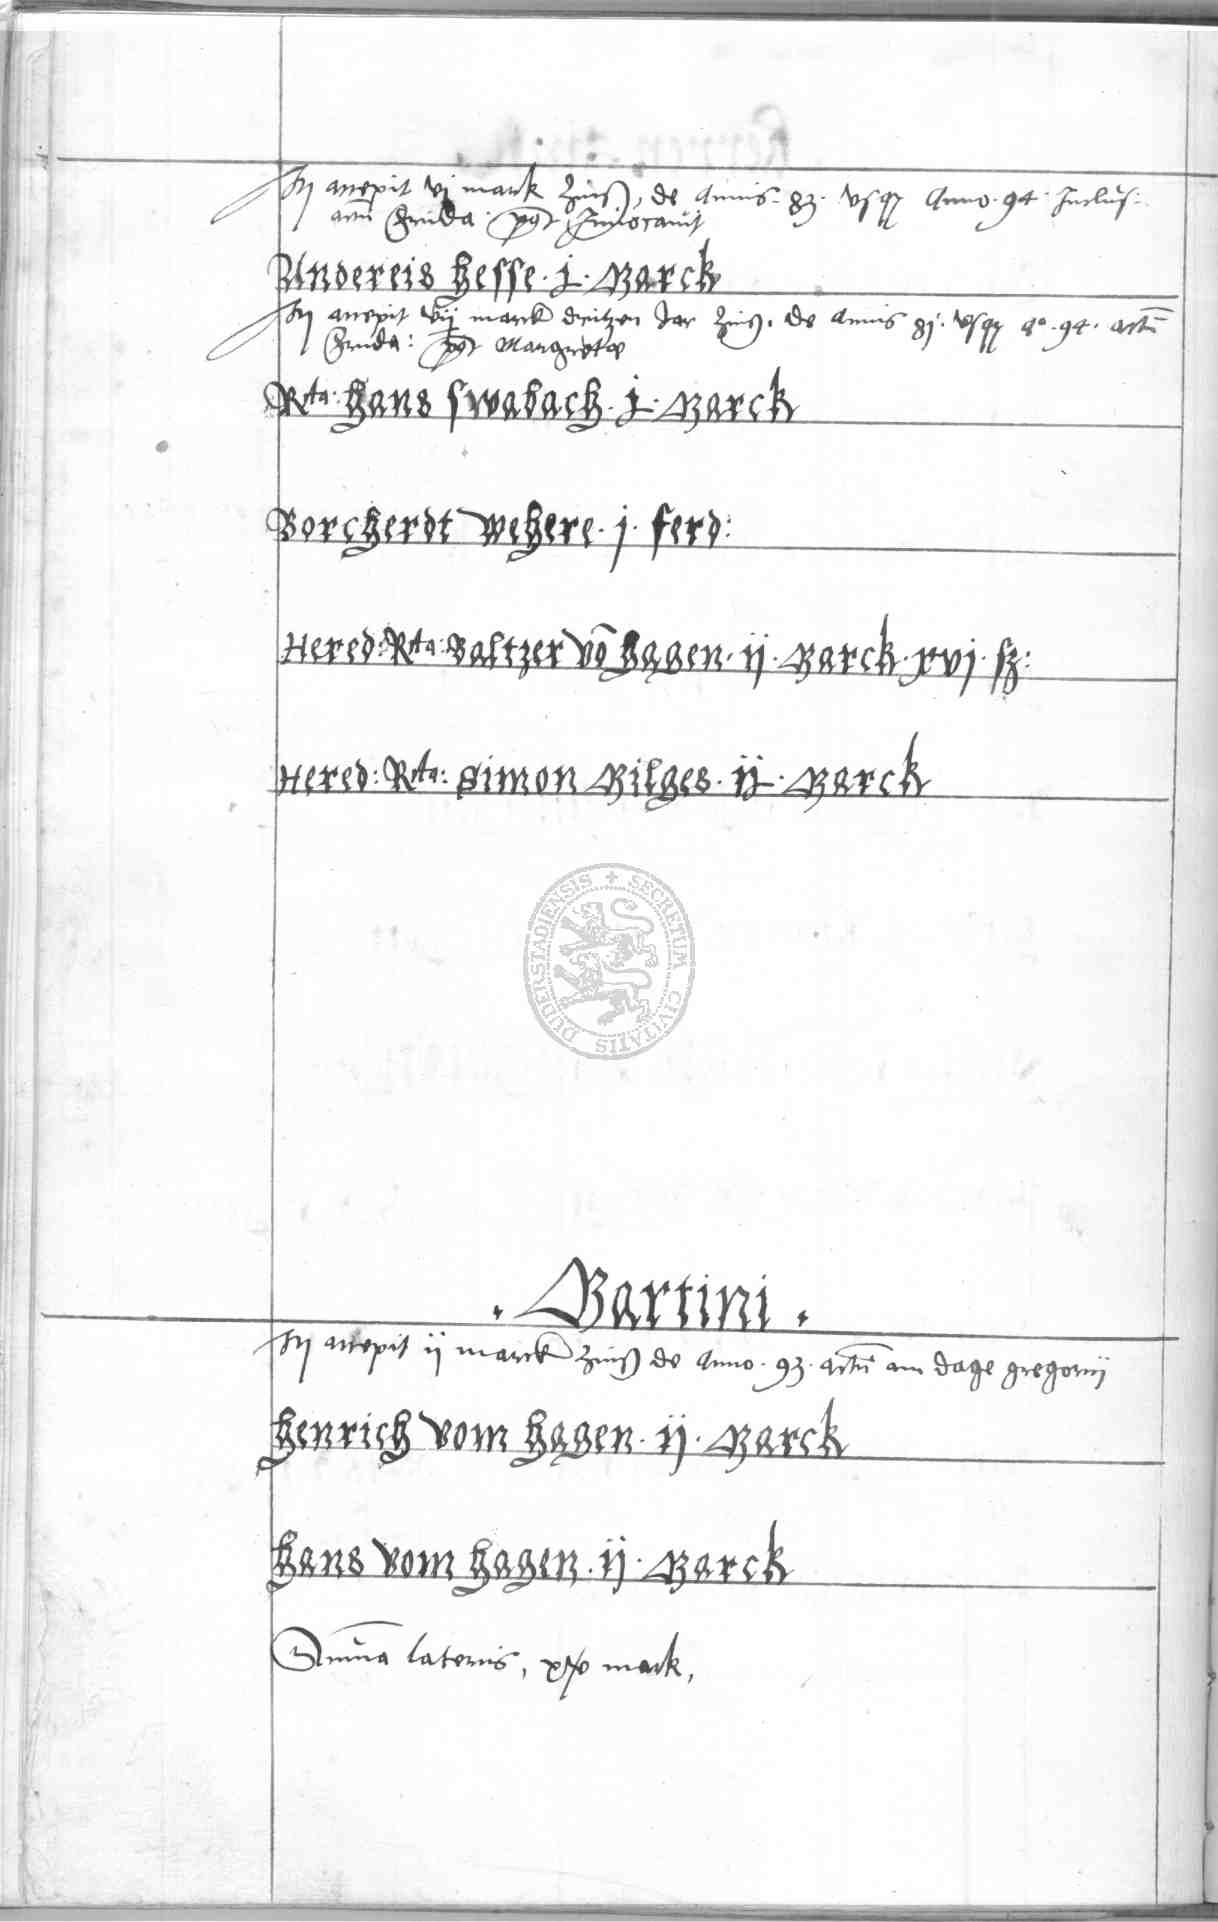 accepit vj marck Zinß, de Annis 83 vsqz Anno 94 Inclus:
actum feria post Inuocauit
Andereis Hesse j Marck
accepit vij marck Zinß, de Annis 81 vsqz Aº 94 actū
post Margrete
Rta: Hans Swabach j Marck
Borcherdt Wehere j ferd:
Hered: Rta: Baltzer vō Hagen ij Marck xvj ß:
Hered: Rta: Simon Gilges ij Marck
SECRETUM CIVITATIS DUDERSTADIENSIS
Martini
accepit ij marck Zinß de Anno 93 actū am dage gregorij
Henrich vom Hagen ij Marck
Hans vom Hagen ij Marck
Suma lateris, marck,